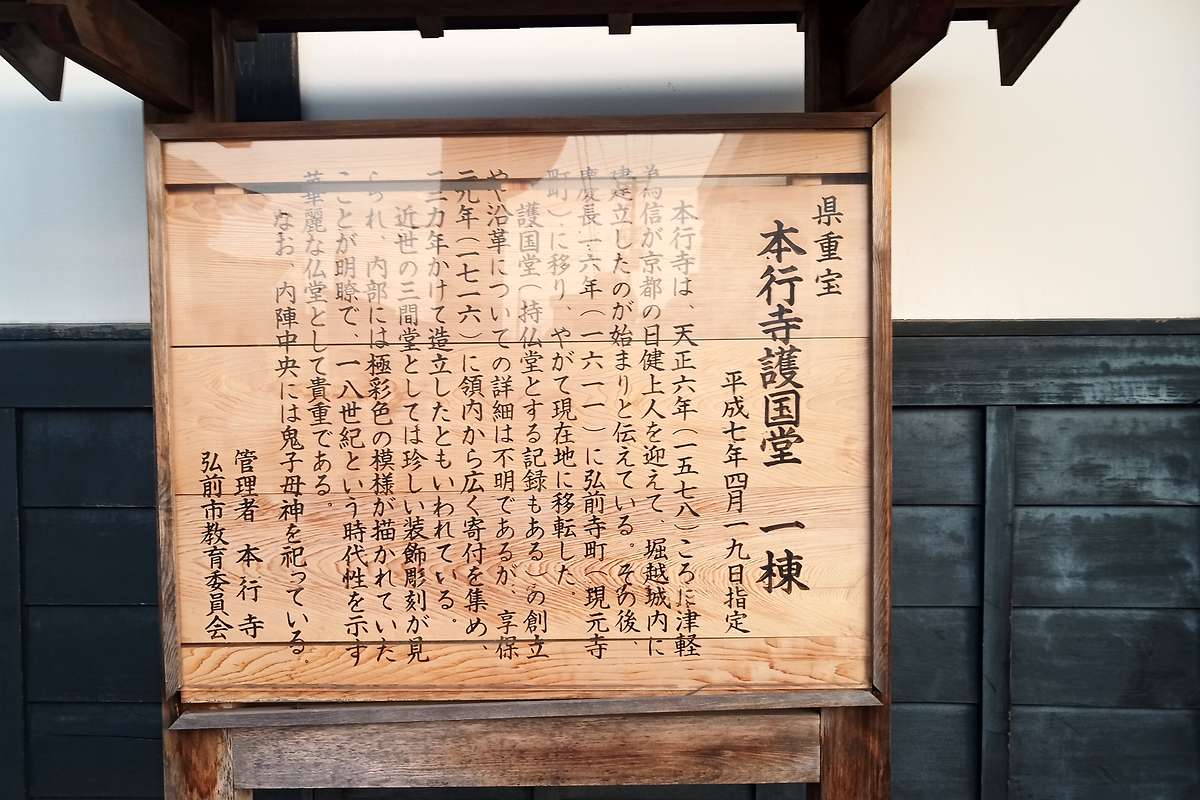 県重宝
本行寺護国堂　一棟
平成七年四月一九日指定
本行寺は、天正六年（一五七八）ころに津軽
為信が京都の日健上人を迎えて、堀越城内に
建立したのが始まりと伝えている。その後、
慶長一六年（一六一一）に弘前寺町（現元寺
町）に移り、やがて現在地に移転した。
護国堂（持仏堂とする記録もある）の創立
や沿革についての詳細は不明であるが、享保
元年（一七一六）に領内から広く寄付を集め、
三カ年かけて造立したともいわれている。
近世の三間堂としては珍しい装飾彫刻が見
られ、内部には極彩色の模様が描かれていた
ことが明瞭で、一八世紀という時代性を示す
華麗な仏堂として貴重である。
なお、内陣中央には鬼子母神を祀っている。
管理者　本行寺
弘前市教育委員会